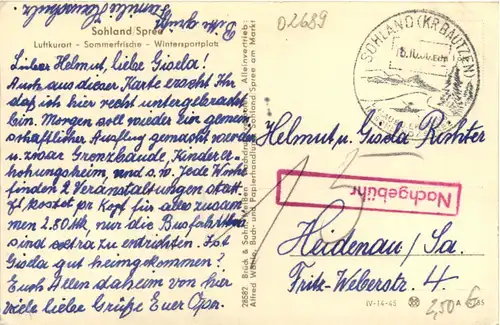 Bitte grüßt
Familie
Sohland/Spree
Luftkurort - Sommerfrische - Wintersportplatz
Lieber Helmut, liebe Gisela!
Auch aus dieser Karte erseht Ihr
daß ich hier recht untergebracht
bin. Morgen soll wieder ein gemein
schaftlicher Ausflug gemacht werden
u. zwar Grenzbaude, Kinderer-
hohungsheim, und s. w. Jede Woche
finden 2 Veranstaltungen statt
kostet pr Kopf für alles zusam
men 2.80 Mk, nur die Busfahrten
sind extra zu entrichten. Ist
Gisela gut heimgekommen?
Euch Allen daheim von hier
viele liebe Grüße Euer Opa.
28582 Brück & Sohn, Meißen
Alleinvertrieb:
Alfred Buch- und Papierhandlung, Sohland Spree am Markt
02689
SOHLAND (KR BAUTZEN)
Helmut u. Gisela Richter
Nachgebühr
15
Heidenau / Sa.
Fritz-Weberstr. 4.
IV-14-45
A
2,50 €